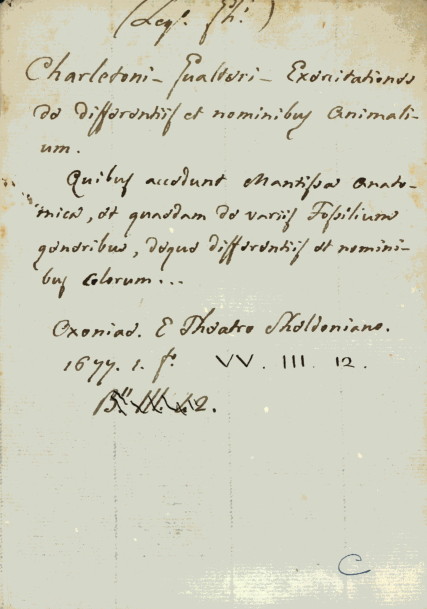 (Leg. Fh.)
Charletoni - Gualteri - Exercitationes
de differentiis et nominibus Animali-
um.
Quibus accedunt Mantissa Anato-
mica, et quaedam de variis Fossilium
generibus, deque differentiis et nomini-
bus colorum...
Oxoniae. E Theatro Sheldoniano.
1677. 1. f. VV. III. 12.
C